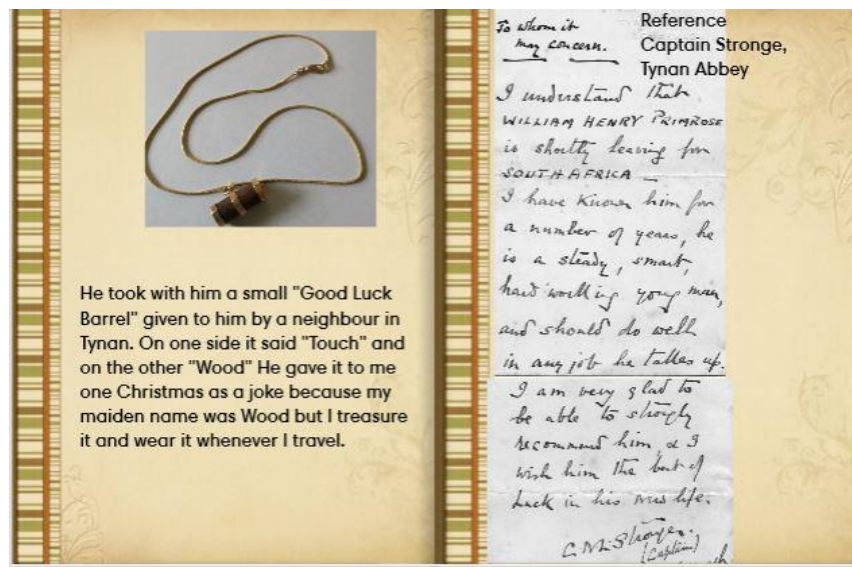 He took with him a small "Good Luck
Barrel" given to him by a neighbour in
Tynan. On one side it said "Touch" and
on the other "Wood" He gave it to me
one Christmas as a joke because my
maiden name was Wood but I treasure
it and wear it whenever I travel.
Reference
Captain Stronge,
Tynan Abbey
To whom it
may concern.
I understand that
WILLIAM HENRY PRIMROSE
is shortly leaving for
SOUTH AFRICA —
I have known him for
a number of years, he
is a steady, smart,
hard working young man,
and should do well
in any job he takes up.
I am very glad to
be able to strongly
recommend him, & I
wish him the best of
luck in his new life.
C. M. Stronge.
(Captain)